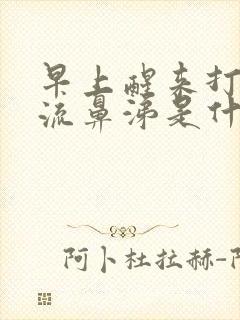 早上醒来打
流鼻涕是什
阿卜杜拉赫-阿